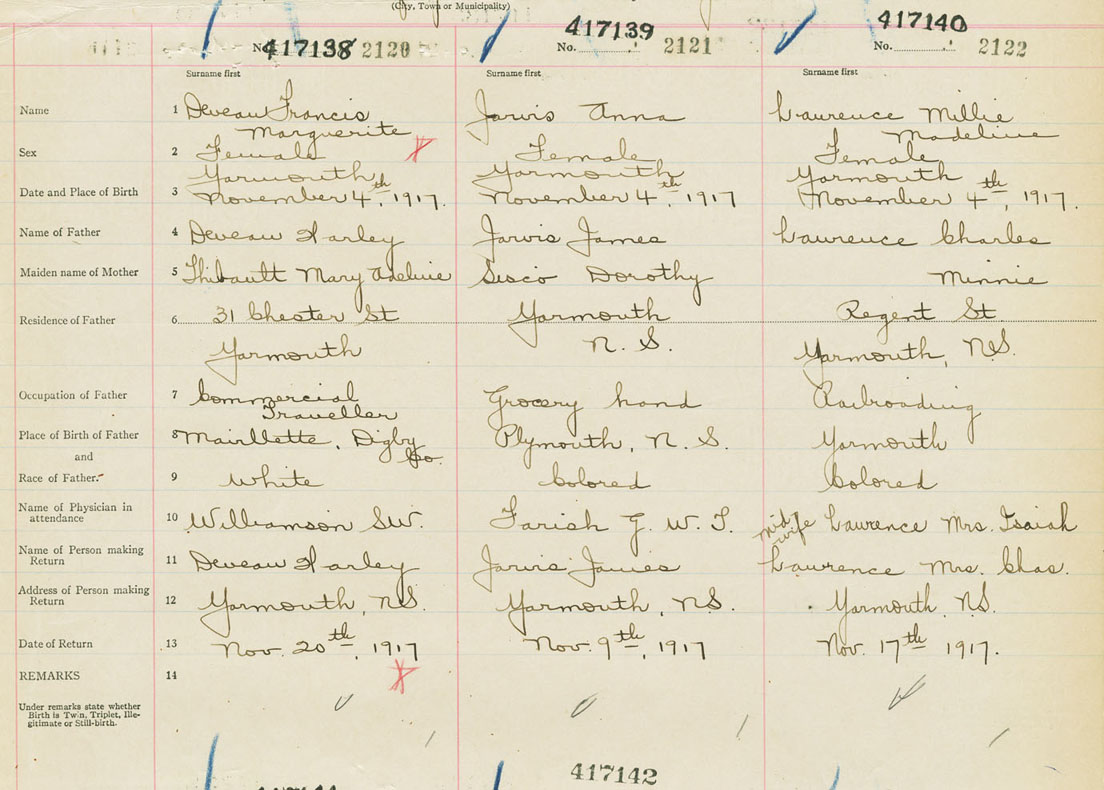 (City, Town or Municipality)
417138 417139 417140
No. 2120 No. 2121 No. 2122
Surname first Surname first Surname first
Name 1 Deveau Francis Jarvis Anna Lawrence Millie
Marguerite Madeline
Sex 2 Female Female Female
Yarmouth Yarmouth Yarmouth
Date and Place of Birth 3 November 4th, 1917. November 4th, 1917 November 4th, 1917.
Name of Father 4 Deveau Harley Jarvis James Lawrence Charles
Maiden name of Mother 5 Thibault Mary Adeline Sisco Dorothy Minnie
Residence of Father 6 31 Chester St Yarmouth Regent St.
Yarmouth N. S. Yarmouth, N.S.
Occupation of Father 7 Commercial Grocery hand Railroading
Traveller
Place of Birth of Father 8 Digby Plymouth, N. S. Yarmouth
and Co.
Race of Father. 9 White Colored Colored
Name of Physician in
attendance 10 Williamson S.W. Farish G. W. T. midwife Lawrence Mrs. Isaiah
Name of Person making
Return 11 Deveau Harley Jarvis James Lawrence Mrs. Chas.
Address of Person making
Return 12 Yarmouth, N.S. Yarmouth, N.S. Yarmouth, N.S.
Date of Return 13 Nov. 20th, 1917 Nov. 9th, 1917 Nov. 17th 1917.
REMARKS 14
Under remarks state whether
Birth is Twin, Triplet, Ille-
gitimate or Still-birth.
417142